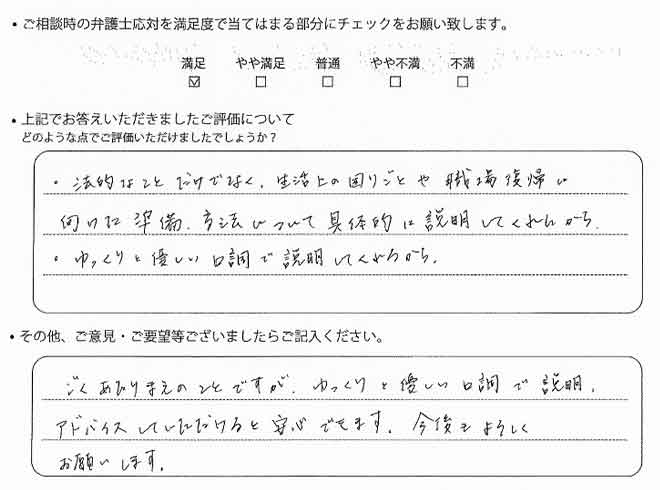 ・ご相談時の弁護士応対を満足度で当てはまる部分にチェックをお願い致します。
満足 やや満足 普通 やや不満 不満
☑ □ □ □ □
・上記でお答えいただきましたご評価について
どのような点でご評価いただけましたでしょうか？
・法的なことだけでなく、生活上の困りごとや職場復帰に
向けた準備、方法について具体的に説明してくれたから。
・ゆっくりと優しい口調で説明してくれるから。
・その他、ご意見・ご要望等ございましたらご記入ください。
ごくあたりまえのことですが、ゆっくりと優しい口調で説明、
アドバイスしていただけると安心できます。今後もよろしく
お願いします。